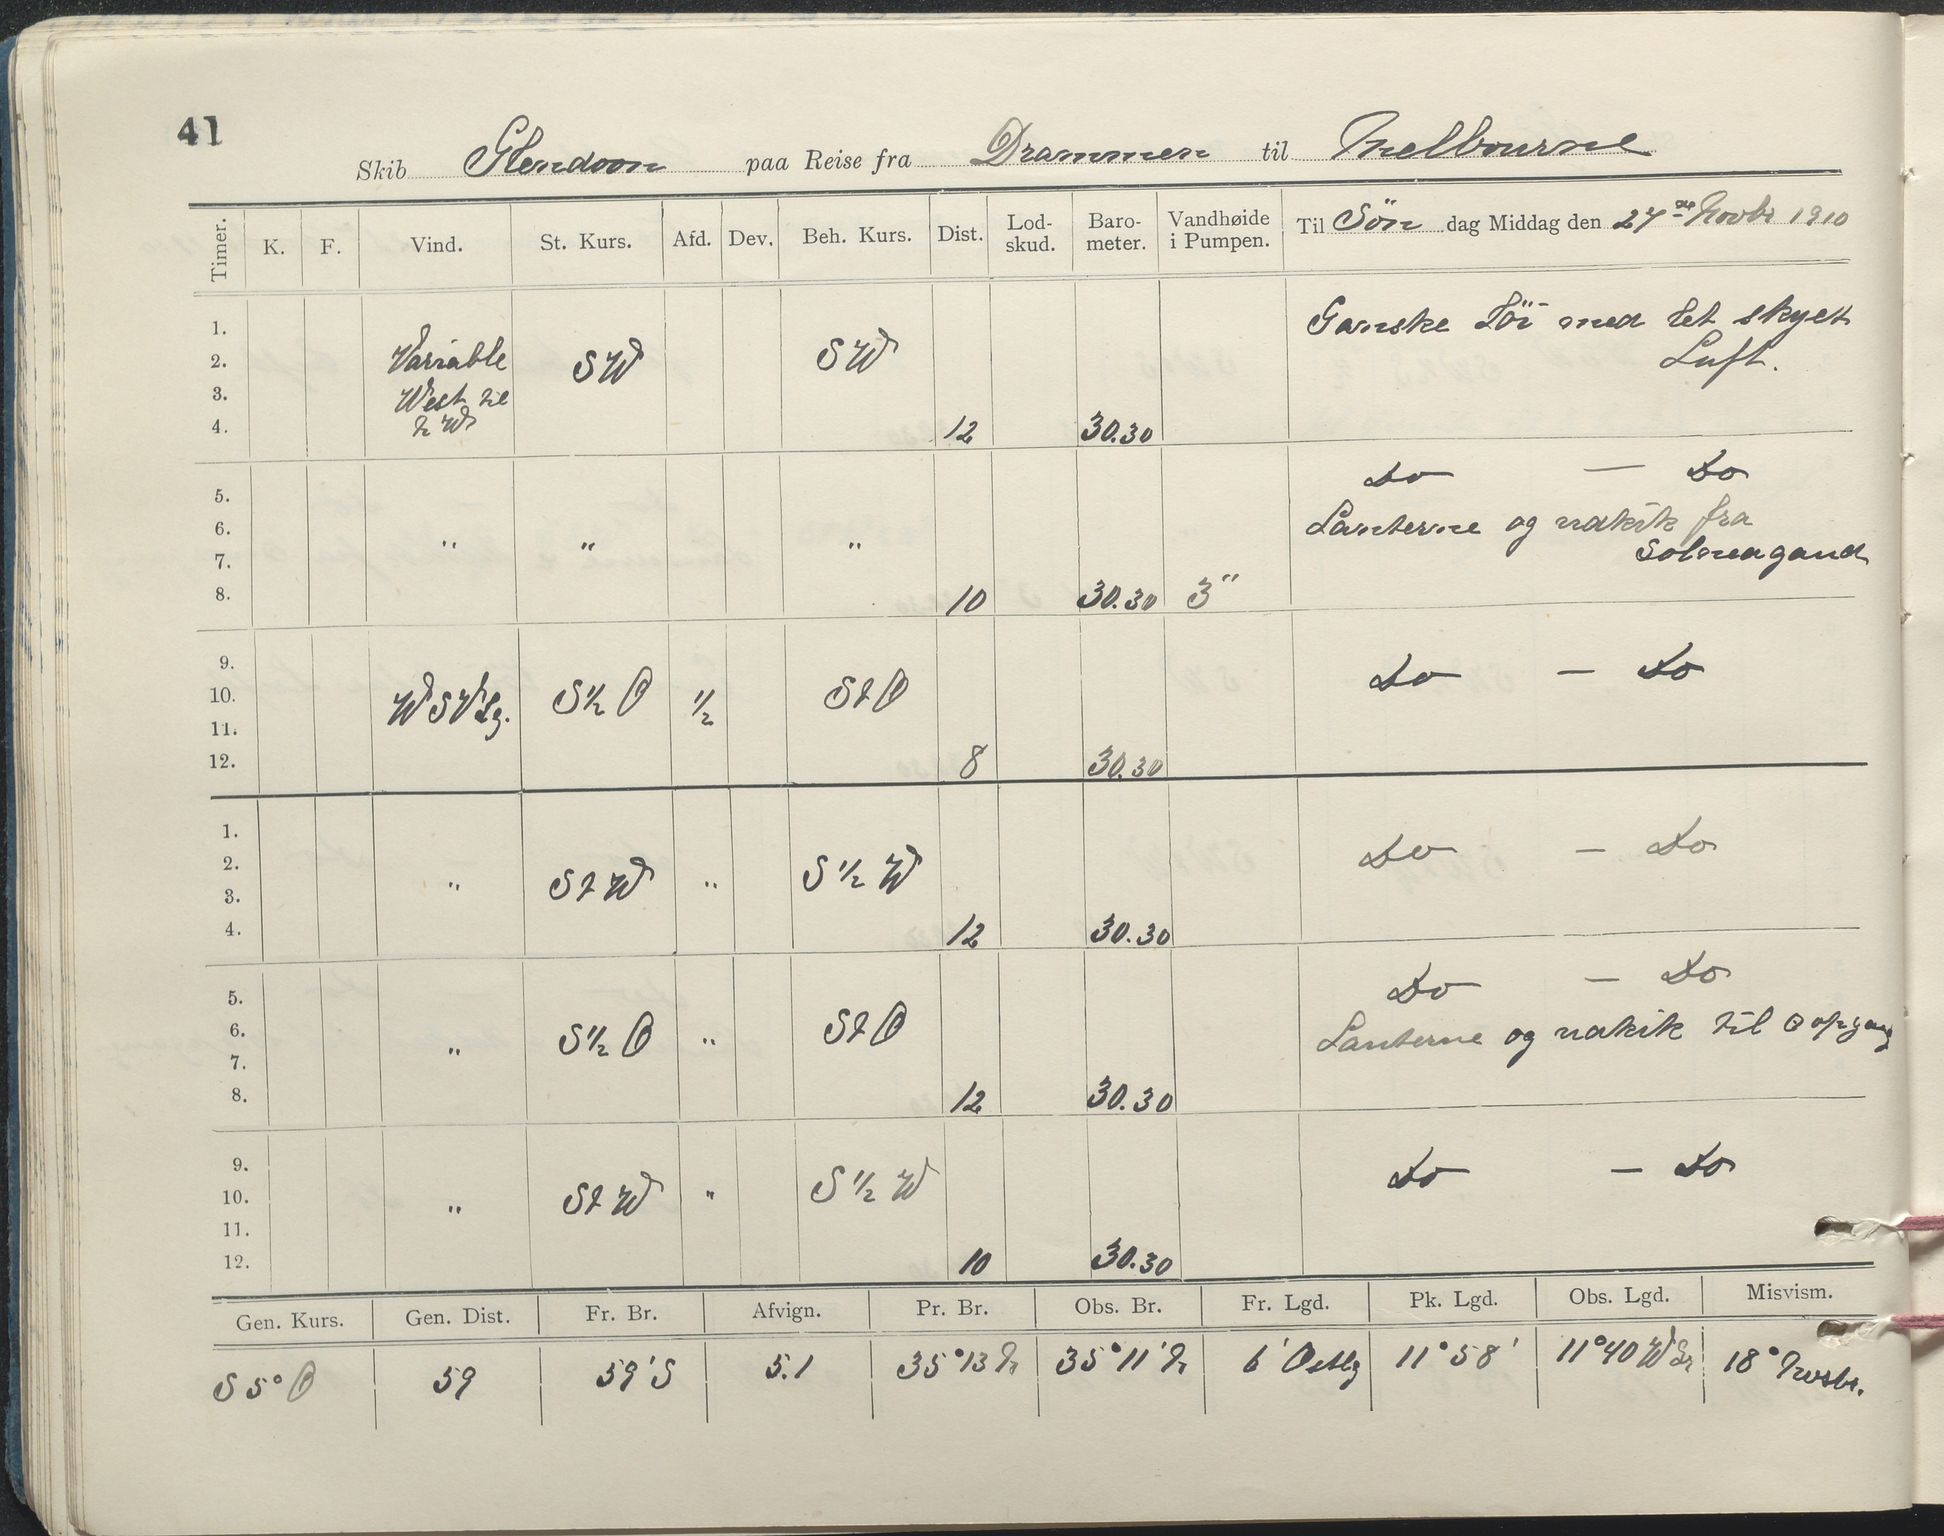 41
Skib Glendoon paa Reise fra Drammen til Melbourne
Timer. K. F. Vind. St. Kurs. Afd. Dev. Beh. Kurs. Dist. Lodskud. Barometer. Vandhøide i Pumpen. Til Søn dag Middag den 27 de Novbr 1910
1. Ganske Löi med let skyet
2. Variable SW SW Luft.
3. West til
4. N W 12 30.30
5. Do — Do
6. Lanterne og udkik fra
7. " " " Solnedgand
8. 10 30.30 3"
9. Do — Do
10. WSWLg. S½O ½ StO
11.
12. 8 30.30
1. Do — Do
2. " StW " S½W
3.
4. 12 30.30
5. Do — Do
6. " S½O " StO Lanterne og udkik til ⊙ opgang
7.
8. 12 30.30
9. Do — Do
10. " StW " S½W
11.
12. 10 30.30
Gen. Kurs. Gen. Dist. Fr. Br. Afvign. Pr. Br. Obs. Br. Fr. Lgd. Pk. Lgd. Obs. Lgd. Misvism.
S 5° O 59 59' S 5.1 35°13 N 35°11' N 6' Ostlg 11°58' 11°40 W 18°